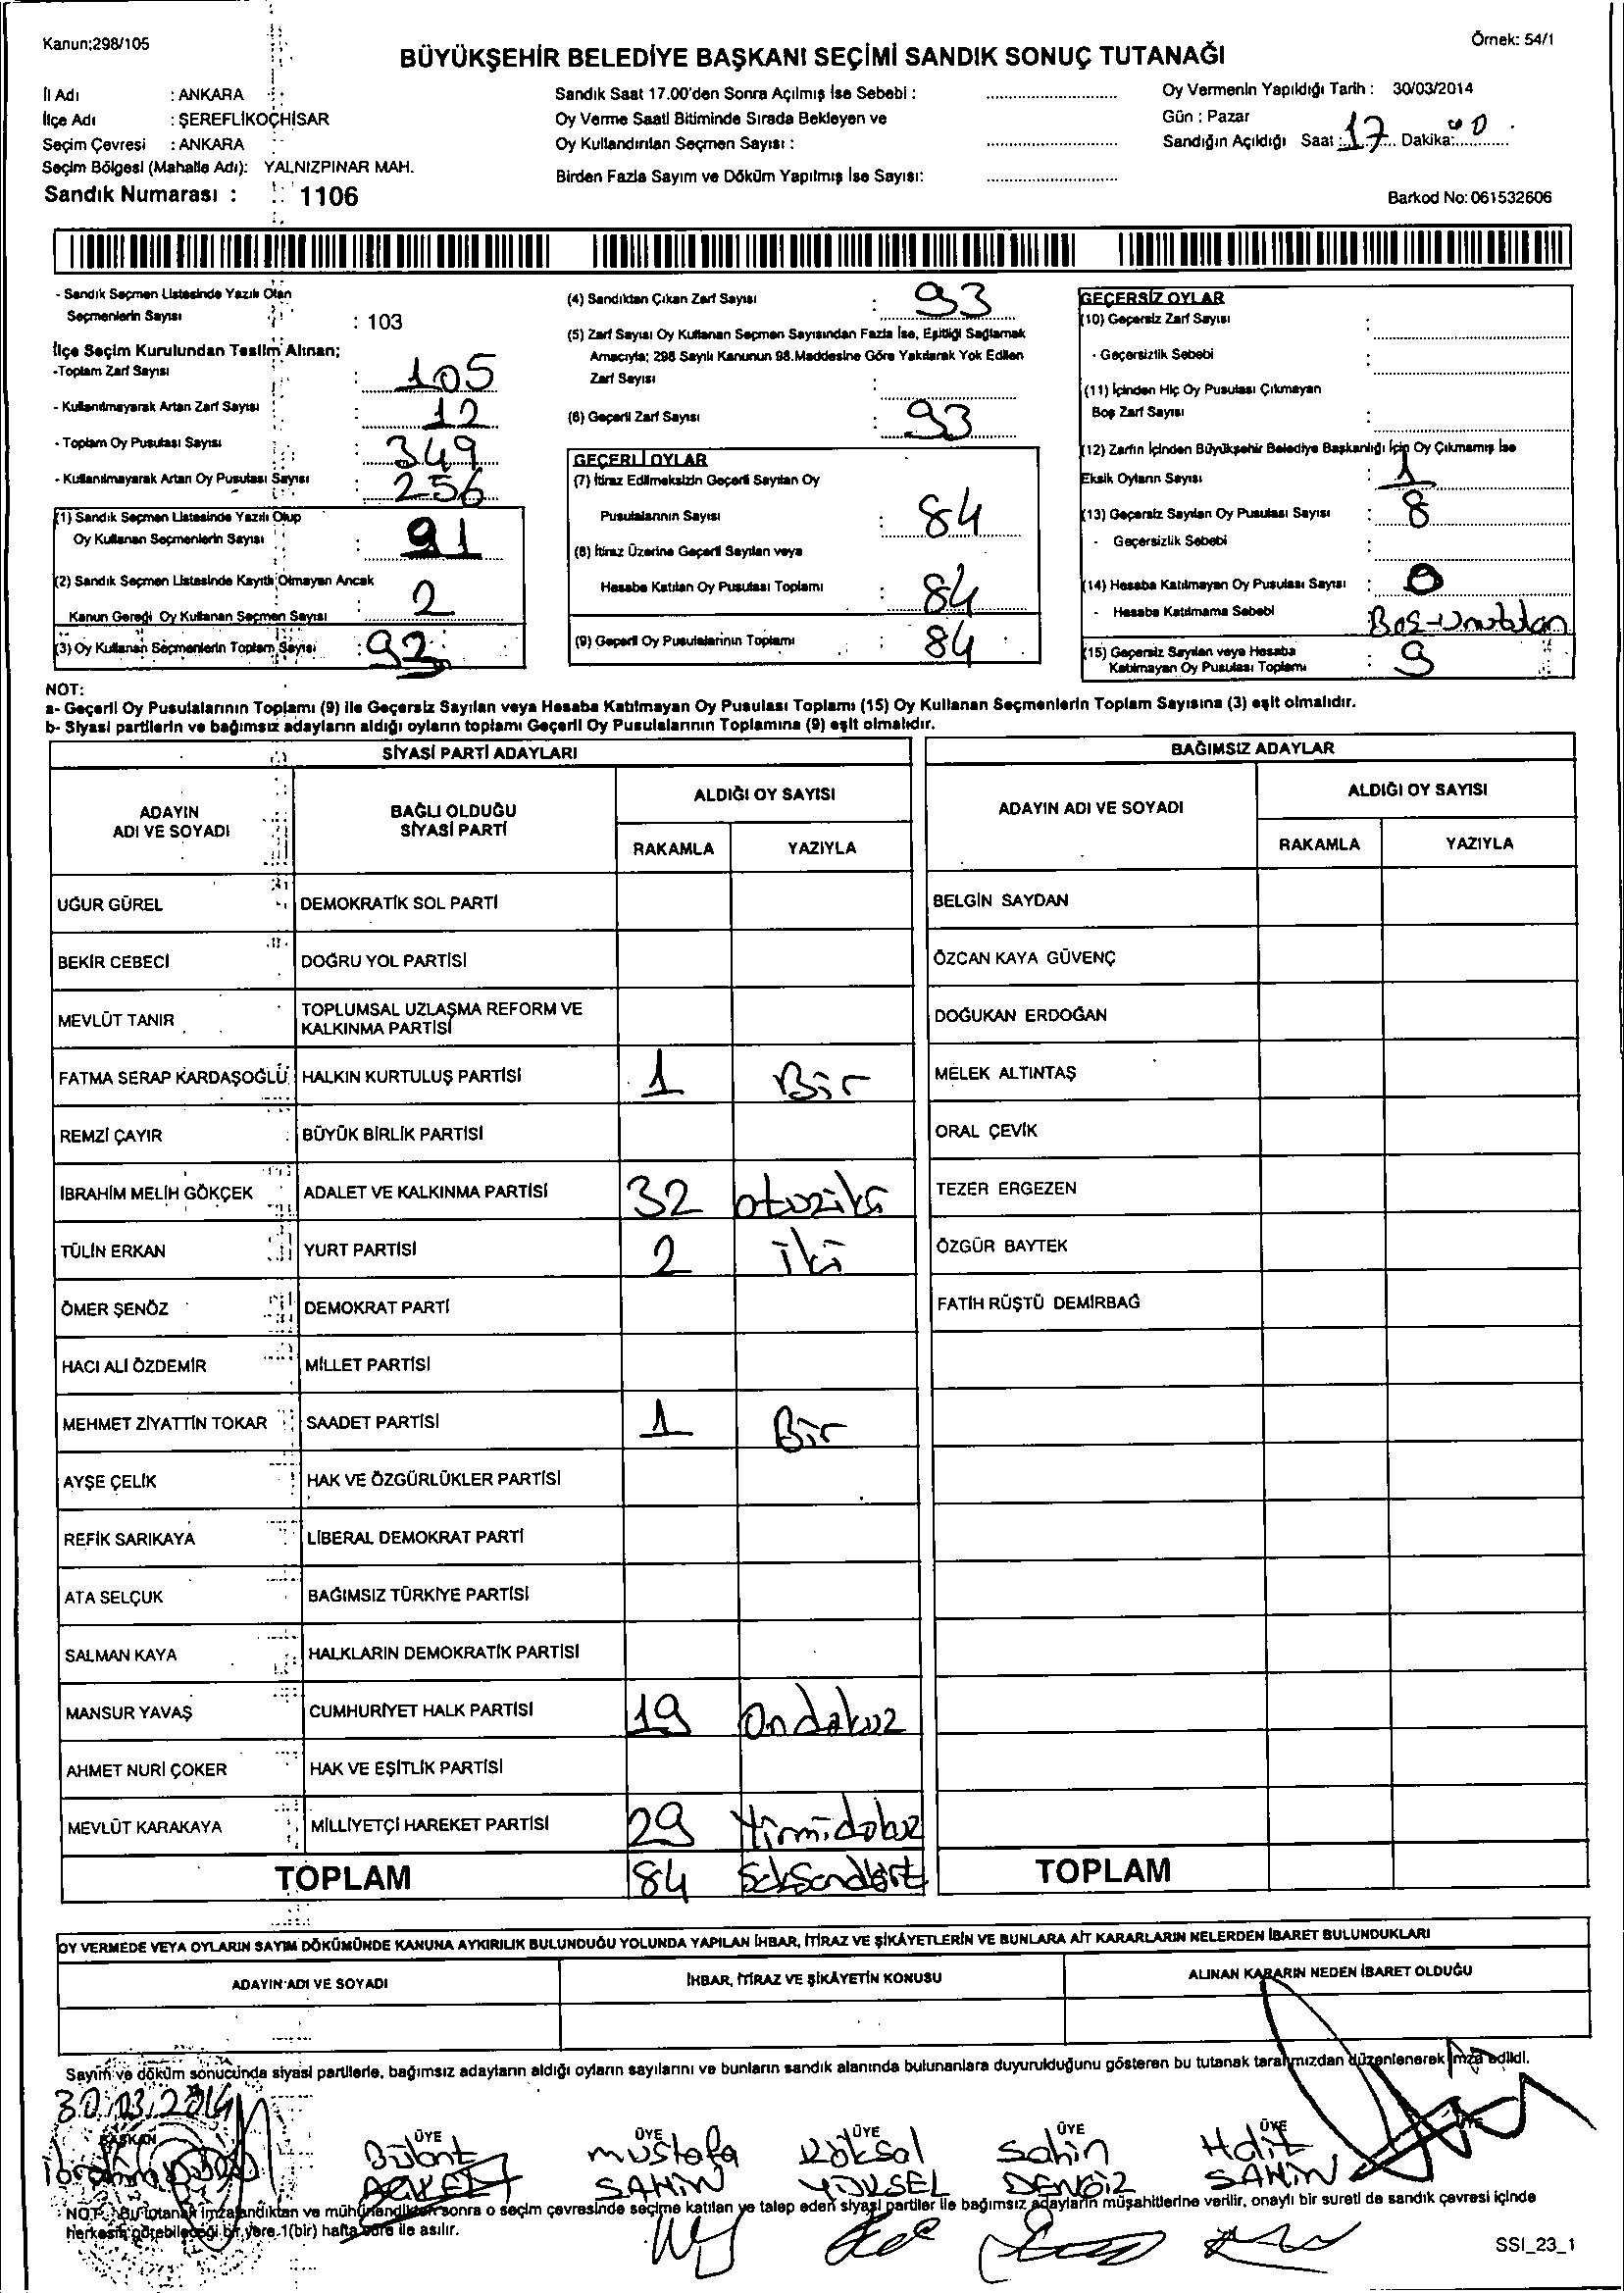 Kanun;298/105
Örnek: 54/1
BÜYÜKŞEHİR BELEDİYE BAŞKANI SEÇİMİ SANDIK SONUÇ TUTANAĞI
İl Adı : ANKARA
İlçe Adı : ŞEREFLİKOÇHİSAR
Seçim Çevresi : ANKARA
Seçim Bölgesi (Mahalle Adı): YALNIZPINAR MAH.
Sandık Numarası : 1106
Sandık Saat 17.00'den Sonra Açılmış İse Sebebi :
Oy Verme Saati Bitiminde Sırada Bekleyen ve
Oy Kullandırılan Seçmen Sayısı :
Birden Fazla Sayım ve Döküm Yapılmış İse Sayısı:
Oy Vermenin Yapıldığı Tarih : 30/03/2014
Gün : Pazar
Sandığın Açıldığı Saat : 17 Dakika:
Barkod No: 061532606
- Sandık Seçmen Listesinde Yazılı Olan
Seçmenlerin Sayısı : 103
İlçe Seçim Kurulundan Teslim Alınan;
-Toplam Zarf Sayısı : 105
- Kullanılmayarak Artan Zarf Sayısı : 12
- Toplam Oy Pusulası Sayısı : 349
- Kullanılmayarak Artan Oy Pusulası Sayısı : 256
(1) Sandık Seçmen Listesinde Yazılı Olup
Oy Kullanan Seçmenlerin Sayısı : 91
(2) Sandık Seçmen Listesinde Kayıtlı Olmayan Ancak
Kanun Gereği Oy Kullanan Seçmen Sayısı : 2
(3) Oy Kullanan Seçmenlerin Toplam Sayısı : 93
(4) Sandıktan Çıkan Zarf Sayısı : 93
(5) Zarf Sayısı Oy Kullanan Seçmen Sayısından Fazla İse, Eşitliği Sağlamak
Amacıyla; 298 Sayılı Kanunun 98.Maddesine Göre Yakılarak Yok Edilen
Zarf Sayısı :
(6) Geçerli Zarf Sayısı : 93
GEÇERLİ OYLAR
(7) İtiraz Edilmeksizin Geçerli Sayılan Oy
Pusulalarının Sayısı : 84
(8) İtiraz Üzerine Geçerli Sayılan veya
Hesaba Katılan Oy Pusulası Toplamı : 84
(9) Geçerli Oy Pusulalarının Toplamı : 84
GEÇERSİZ OYLAR
(10) Geçersiz Zarf Sayısı :
- Geçersizlik Sebebi :
(11) İçinden Hiç Oy Pusulası Çıkmayan
Boş Zarf Sayısı :
(12) Zarfın İçinden Büyükşehir Belediye Başkanlığı İçin Oy Çıkmamış İse
Eksik Oyların Sayısı : 1
(13) Geçersiz Sayılan Oy Pusulası Sayısı : 8
- Geçersizlik Sebebi :
(14) Hesaba Katılmayan Oy Pusulası Sayısı : 0
- Hesaba Katılmama Sebebi : Boş-Unutulan
(15) Geçersiz Sayılan veya Hesaba
Katılmayan Oy Pusulası Toplamı : 9
NOT:
a- Geçerli Oy Pusulalarının Toplamı (9) ile Geçersiz Sayılan veya Hesaba Katılmayan Oy Pusulası Toplamı (15) Oy Kullanan Seçmenlerin Toplam Sayısına (3) eşit olmalıdır.
b- Siyasi partilerin ve bağımsız adayların aldığı oyların toplamı Geçerli Oy Pusulalarının Toplamına (9) eşit olmalıdır.
SİYASİ PARTİ ADAYLARI
ADAYIN
ADI VE SOYADI
BAĞLI OLDUĞU
SİYASİ PARTİ
ALDIĞI OY SAYISI
RAKAMLA YAZIYLA
UĞUR GÜREL DEMOKRATİK SOL PARTİ
BEKİR CEBECİ DOĞRU YOL PARTİSİ
MEVLÜT TANIR TOPLUMSAL UZLAŞMA REFORM VE
KALKINMA PARTİSİ
FATMA SERAP KARDAŞOĞLU HALKIN KURTULUŞ PARTİSİ 1 Bir
REMZİ ÇAYIR BÜYÜK BİRLİK PARTİSİ
İBRAHİM MELİH GÖKÇEK ADALET VE KALKINMA PARTİSİ 32 otuziki
TÜLİN ERKAN YURT PARTİSİ 2 iki
ÖMER ŞENÖZ DEMOKRAT PARTİ
HACI ALİ ÖZDEMİR MİLLET PARTİSİ
MEHMET ZİYATTİN TOKAR SAADET PARTİSİ 1 Bir
AYŞE ÇELİK HAK VE ÖZGÜRLÜKLER PARTİSİ
REFİK SARIKAYA LİBERAL DEMOKRAT PARTİ
ATA SELÇUK BAĞIMSIZ TÜRKİYE PARTİSİ
SALMAN KAYA HALKLARIN DEMOKRATİK PARTİSİ
MANSUR YAVAŞ CUMHURİYET HALK PARTİSİ 19 Ondokuz
AHMET NURİ ÇOKER HAK VE EŞİTLİK PARTİSİ
MEVLÜT KARAKAYA MİLLİYETÇİ HAREKET PARTİSİ 29 Yirmidokuz
TOPLAM 84 Seksendört
BAĞIMSIZ ADAYLAR
ADAYIN ADI VE SOYADI
ALDIĞI OY SAYISI
RAKAMLA YAZIYLA
BELGİN SAYDAN
ÖZCAN KAYA GÜVENÇ
DOĞUKAN ERDOĞAN
MELEK ALTINTAŞ
ORAL ÇEVİK
TEZER ERGEZEN
ÖZGÜR BAYTEK
FATİH RÜŞTÜ DEMİRBAĞ
TOPLAM
OY VERMEDE VEYA OYLARIN SAYIM DÖKÜMÜNDE KANUNA AYKIRILIK BULUNDUĞU YOLUNDA YAPILAN İHBAR, İTİRAZ VE ŞİKÂYETLERİN VE BUNLARA AİT KARARLARIN NELERDEN İBARET BULUNDUKLARI
ADAYIN ADI VE SOYADI
İHBAR, İTİRAZ VE ŞİKÂYETİN KONUSU
ALINAN KARARIN NEDEN İBARET OLDUĞU
Sayım ve döküm sonucunda siyasi partilerle, bağımsız adayların aldığı oyların sayılarını ve bunların sandık alanında bulunanlara duyurulduğunu gösteren bu tutanak tarafımızdan düzenlenerek imza edildi.
30.03.2014
BAŞKAN ÜYE ÜYE ÜYE ÜYE ÜYE ÜYE
İbrahim Bülent Mustafa Köksal Şahin Halit
ŞAHİN YÜKSEL DENGİZ ŞAHİN
NOT: Bu tutanak imzalandıktan ve mühürlendikten sonra o seçim çevresinde seçime katılan ve talep eden siyasi partiler ile bağımsız adayların müşahitlerine verilir, onaylı bir sureti de sandık çevresi içinde
herkesin görebileceği bir yere 1(bir) hafta süre ile asılır.
SSI_23_1